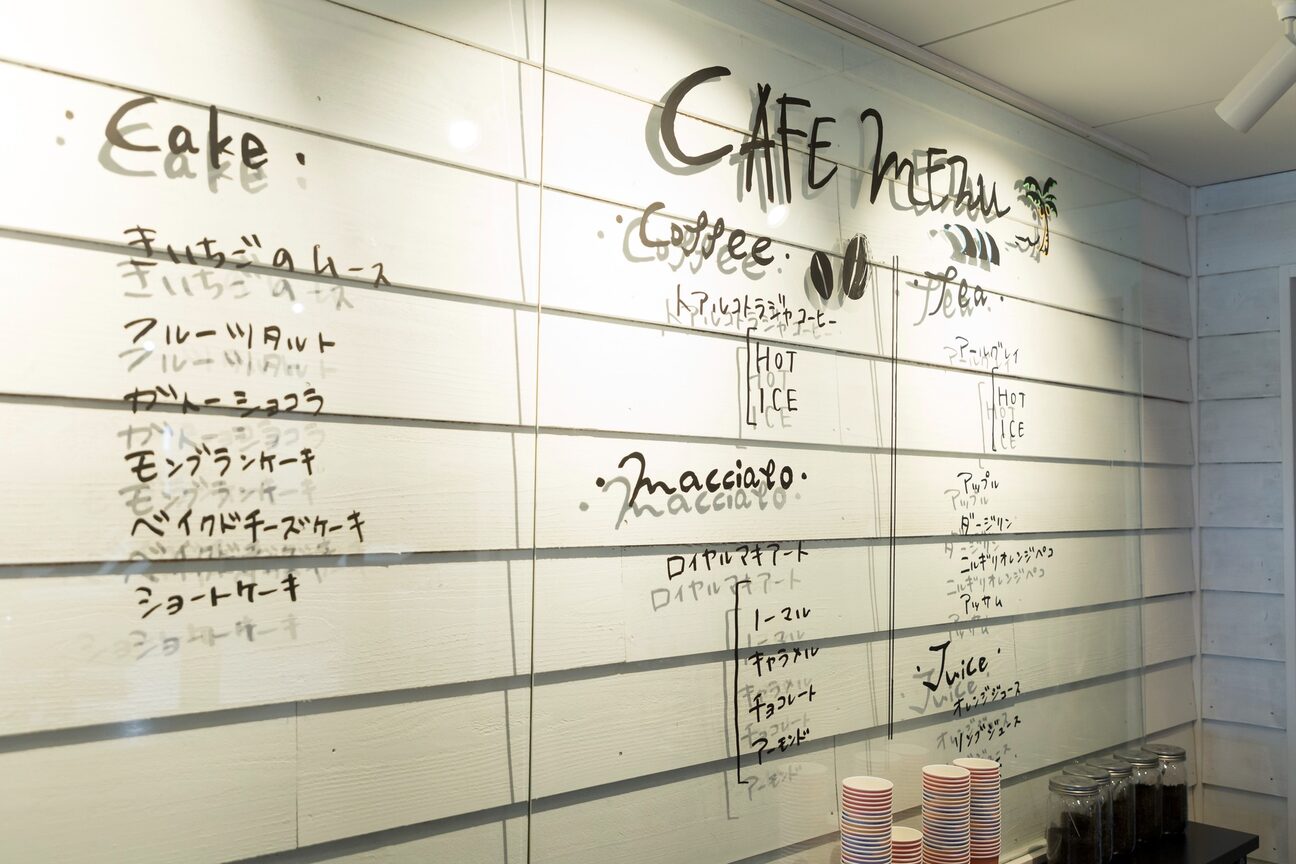 CAFE MENU
・Cake・
きいちごのムース
フルーツタルト
ガトーショコラ
モンブランケーキ
ベイクドチーズケーキ
ショートケーキ
・Coffee・
トアルコトラジャコーヒー
HOT
ICE
・Macciato・
ロイヤルマキアート
ノーマル
キャラメル
チョコレート
アーモンド
・Tea・
アールグレイ
HOT
ICE
アップル
ダージリン
ニルギリオレンジペコ
アッサム
・Juice・
オレンジジュース
リンゴジュース